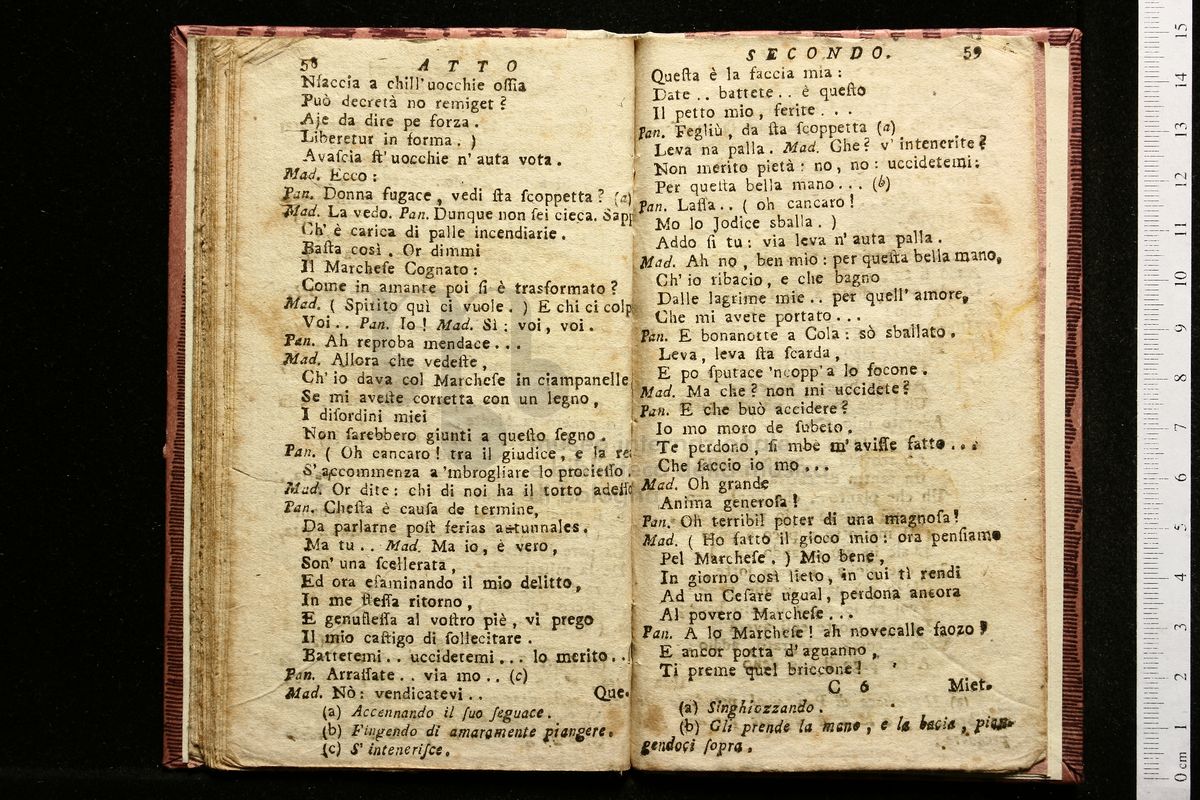 58 ATTO
Nfaccia a chill' uocchie oſſia
Può decretà no remiget?
Aje da dire pe forza.
Liberetur in forma. )
Avaſcia ſt' uocchie n' auta vota.
Mad. Ecco:
Pan. Donna fugace, vedi ſta ſcoppetta? (a)
Mad. La vedo. Pan. Dunque non ſei cieca. Sapp
Ch' è carica di palle incendiarie.
Baſta così. Or dimmi
Il Marcheſe Cognato:
Come in amante poi ſi è trasformato?
Mad. ( Spirito quì ci vuole. ) E chi ci colp
Voi.. Pan. Io! Mad. Sì: voi, voi.
Pan. Ah reproba mendace...
Mad. Allora che vedeſte,
Ch' io dava col Marcheſe in ciampanelle
Se mi aveſte corretta con un legno,
I diſordini miei
Non ſarebbero giunti a queſto ſegno.
Pan. ( Oh cancaro! tra il giudice, e la re
S' accommenza a 'mbrogliare lo procieſſo.
Mad. Or dite: chi di noi ha il torto adeſſo
Pan. Cheſta è cauſa de termine,
Da parlarne poſt ferias autunnales.
Ma tu.. Mad. Ma io, è vero,
Son' una ſcellerata,
Ed ora eſaminando il mio delitto,
In me ſteſſa ritorno,
E genufleſſa al voſtro piè, vi prego
Il mio caſtigo di ſollecitare.
Battetemi.. uccidetemi... lo merito..
Pan. Arraſſate.. via mo.. (c)
Mad. Nò: vendicatevi.. Que-
(a) Accennando il ſuo ſeguace.
(b) Fingendo di amaramente piangere.
(c) S' inteneriſce.
SECONDO. 59
Queſta è la faccia mia:
Date.. battete.. è queſto
Il petto mio, ferite...
Pan. Fegliù, da ſta ſcoppetta (a)
Leva na palla. Mad. Che? v' intenerite?
Non merito pietà: no, no: uccidetemi:
Per queſta bella mano... (b)
Pan. Laſſa.. ( oh cancaro!
Mo lo Jodice sballa. )
Addo ſi tu: via leva n' auta palla.
Mad. Ah no, ben mio: per queſta bella mano,
Ch' io ribacio, e che bagno
Dalle lagrime mie.. per quell' amore,
Che mi avete portato...
Pan. E bonanotte a Cola: sò sballato.
Leva, leva ſta ſcarda,
E po ſputace 'ncopp' a lo focone.
Mad. Ma che? non mi uccidete?
Pan. E che buò accidere?
Io mo moro de ſubeto.
Te perdono, ſi mbe m' aviſſe fatto...
Che faccio io mo...
Mad. Oh grande
Anima generoſa!
Pan. Oh terribil poter di una magnoſa!
Mad. ( Ho fatto il gioco mio: ora penſiamo
Pel Marcheſe. ) Mio bene,
In giorno così lieto, in cui tì rendi
Ad un Ceſare ugual, perdona ancora
Al povero Marcheſe...
Pan. A lo Marcheſe! ah novecalle faozo!
E ancor potta d' aguanno,
Ti preme quel briccone!
C 6 Miet-
(a) Singhiozzando.
(b) Gli prende la mano, e la bacia, pian-
gendoci ſopra.
0 cm 1 2 3 4 5 6 7 8 9 10 11 12 13 14 15